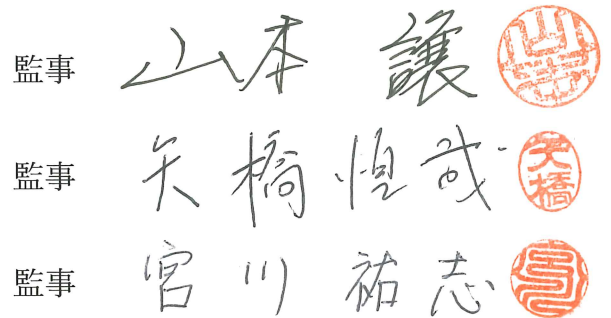 監事 山本 譲
監事 矢橋 恒哉 矢橋
監事 宮川 祐志